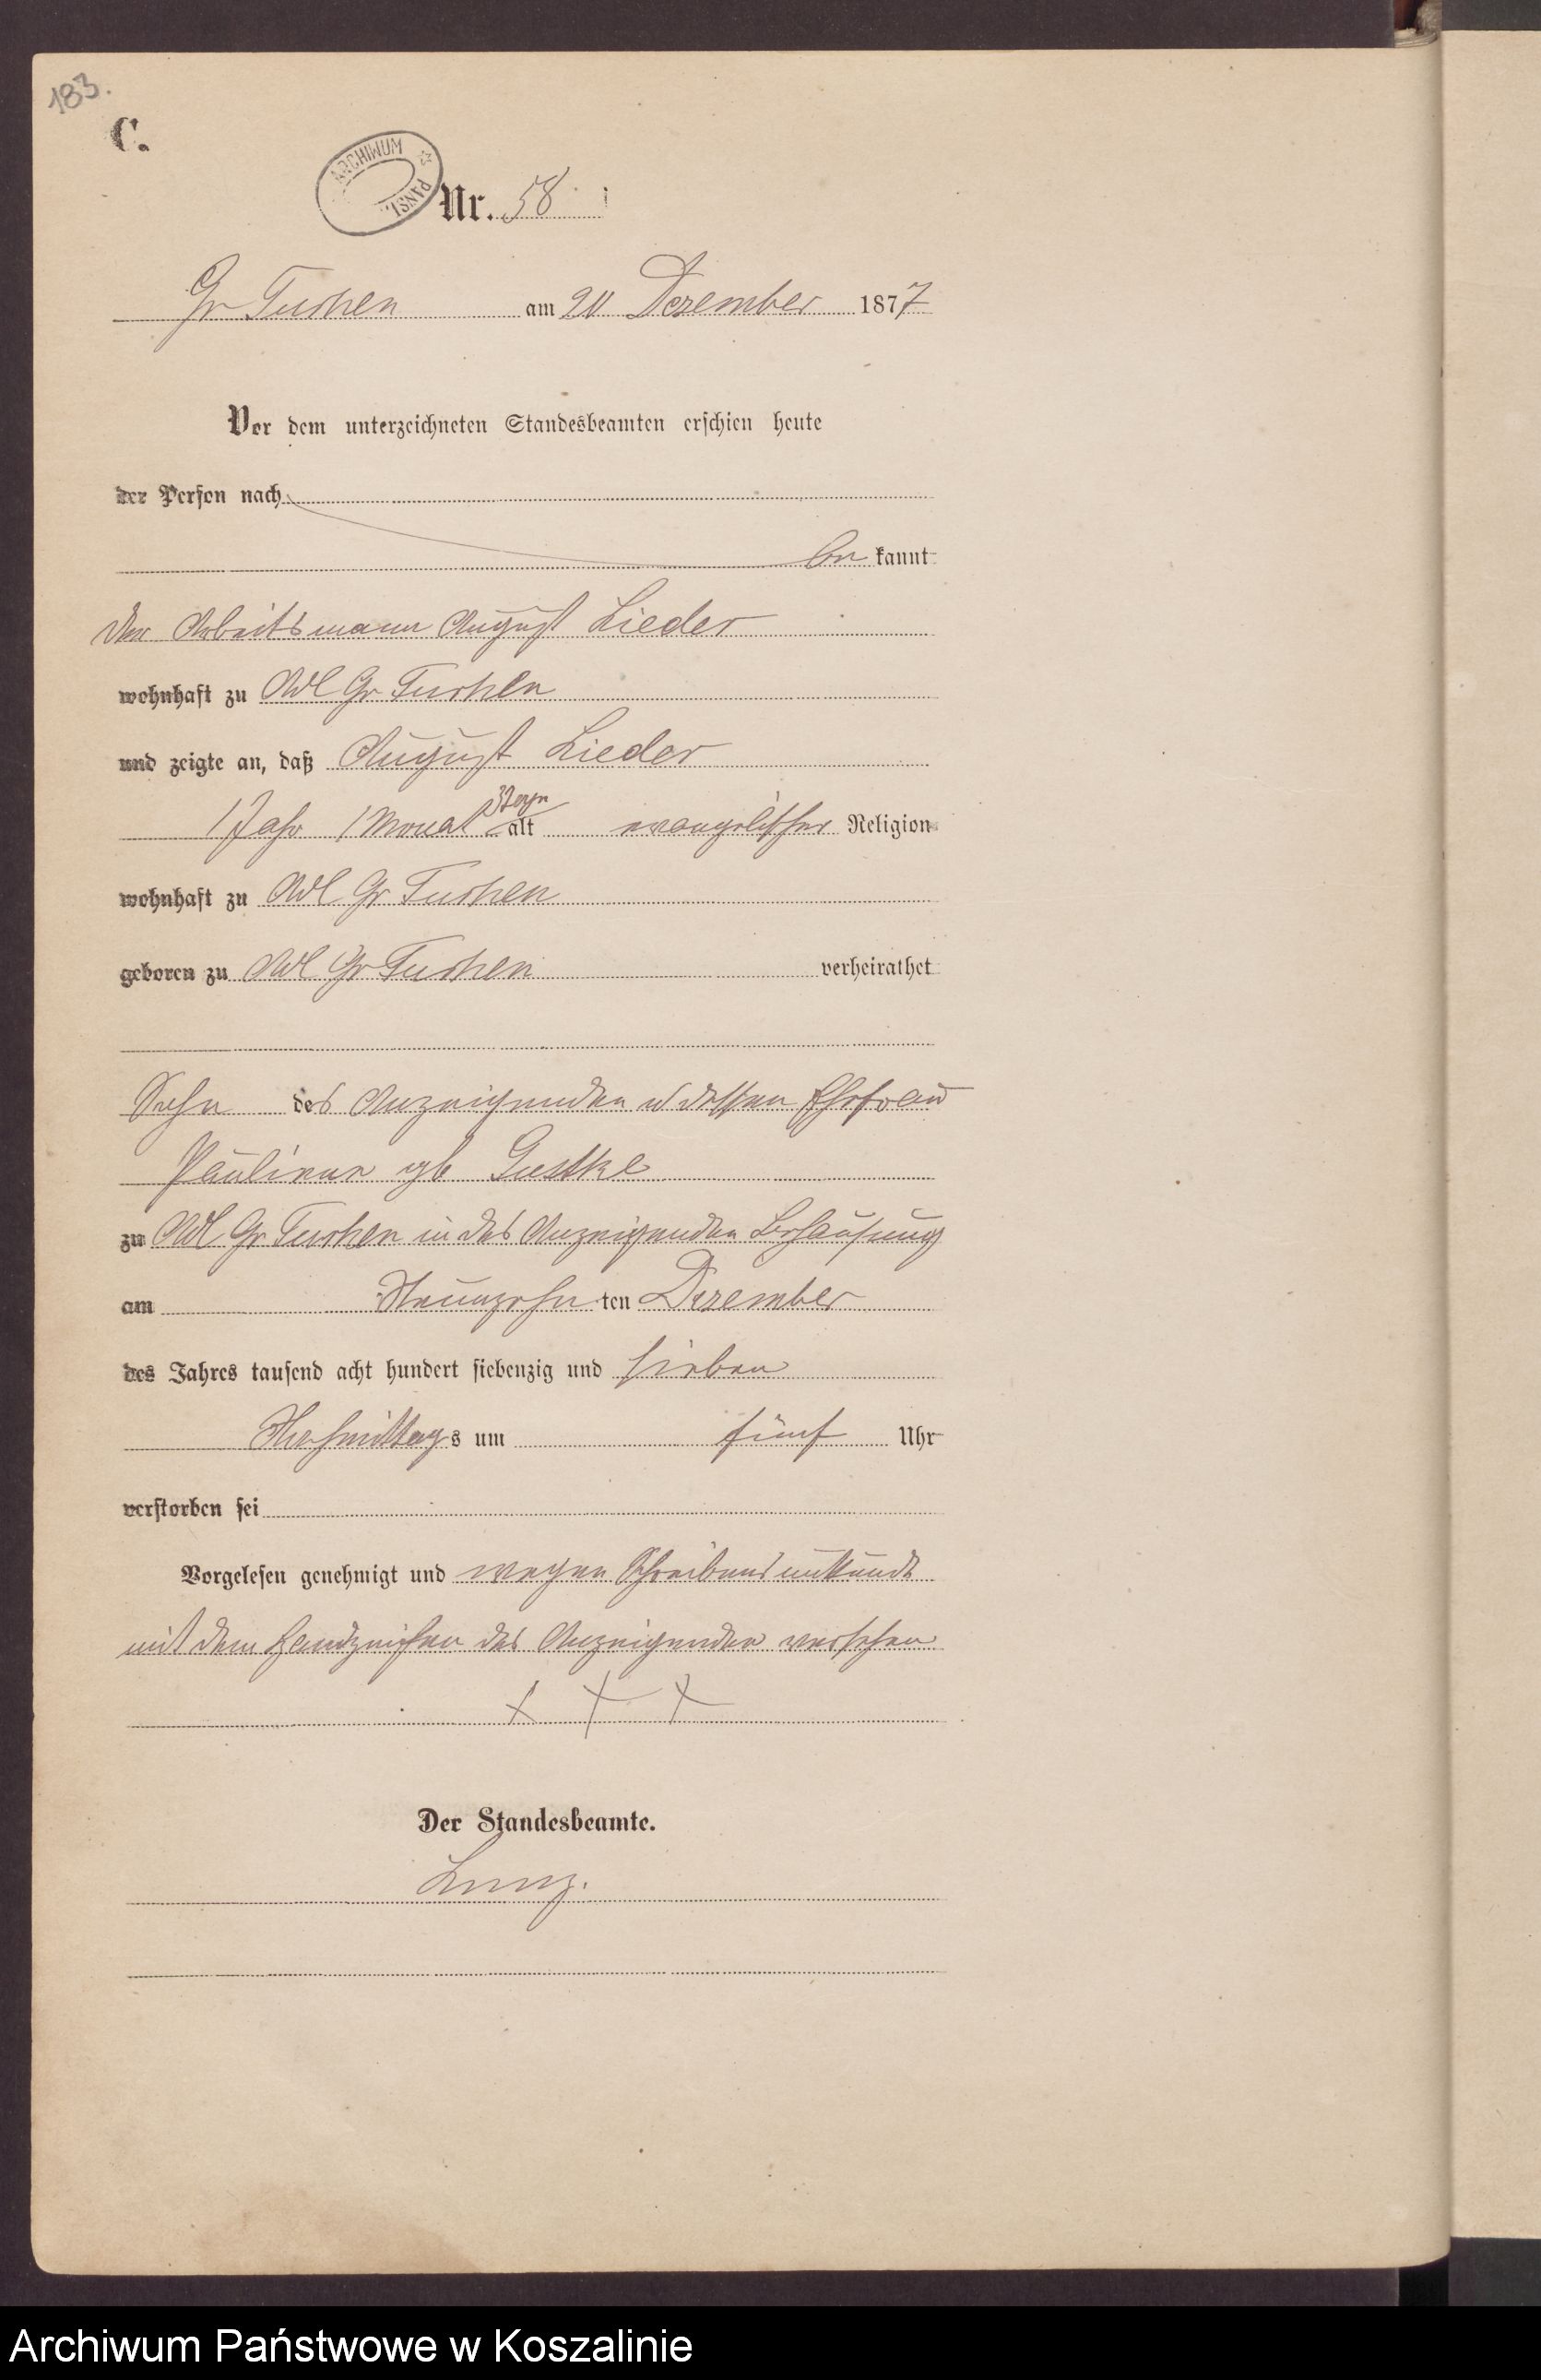 183.
C.
ARCHIWUM PAŃST.
Nr. 58
Gr Tuchen am 20 Dezember 1877
Vor dem unterzeichneten Standesbeamten erschien heute
der Person nach
be kannt
der Arbeitsmann August Lieder
wohnhaft zu Adl Gr Tuchen
und zeigte an, daß August Lieder
1 Jahr 1 Monat 3 Tage alt evangelischer Religion
wohnhaft zu Adl Gr Tuchen
geboren zu Adl Gr Tuchen verheirathet
Sohn des Anzeigenden u dessen Ehefrau
Pauline geb Gustke
zu Adl Gr Tuchen in des Anzeigenden Behausung
am Neunzehn ten Dezember
des Jahres tausend acht hundert siebenzig und sieben
Nachmittags um fünf Uhr
verstorben sei
Vorgelesen genehmigt und wegen Schreibensunkunde
mit dem Handzeichen des Anzeigenden versehen
+ + +
Der Standesbeamte.
Archiwum Państwowe w Koszalinie